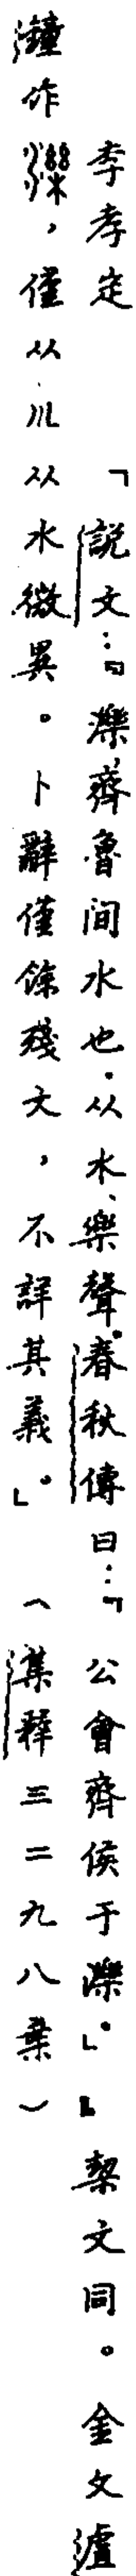 李孝定　「說文：『濼齊魯間水也。从水、樂聲。春秋傳曰：『公會齊侯于濼。』』契文同。金文瀘
鐘作，僅从巛从水微異。卜辭僅餘殘文，不詳其義。」　（集釋三二九八葉）